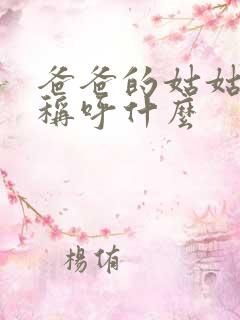 爸爸的姑姑
稱呼什麼
楊侑